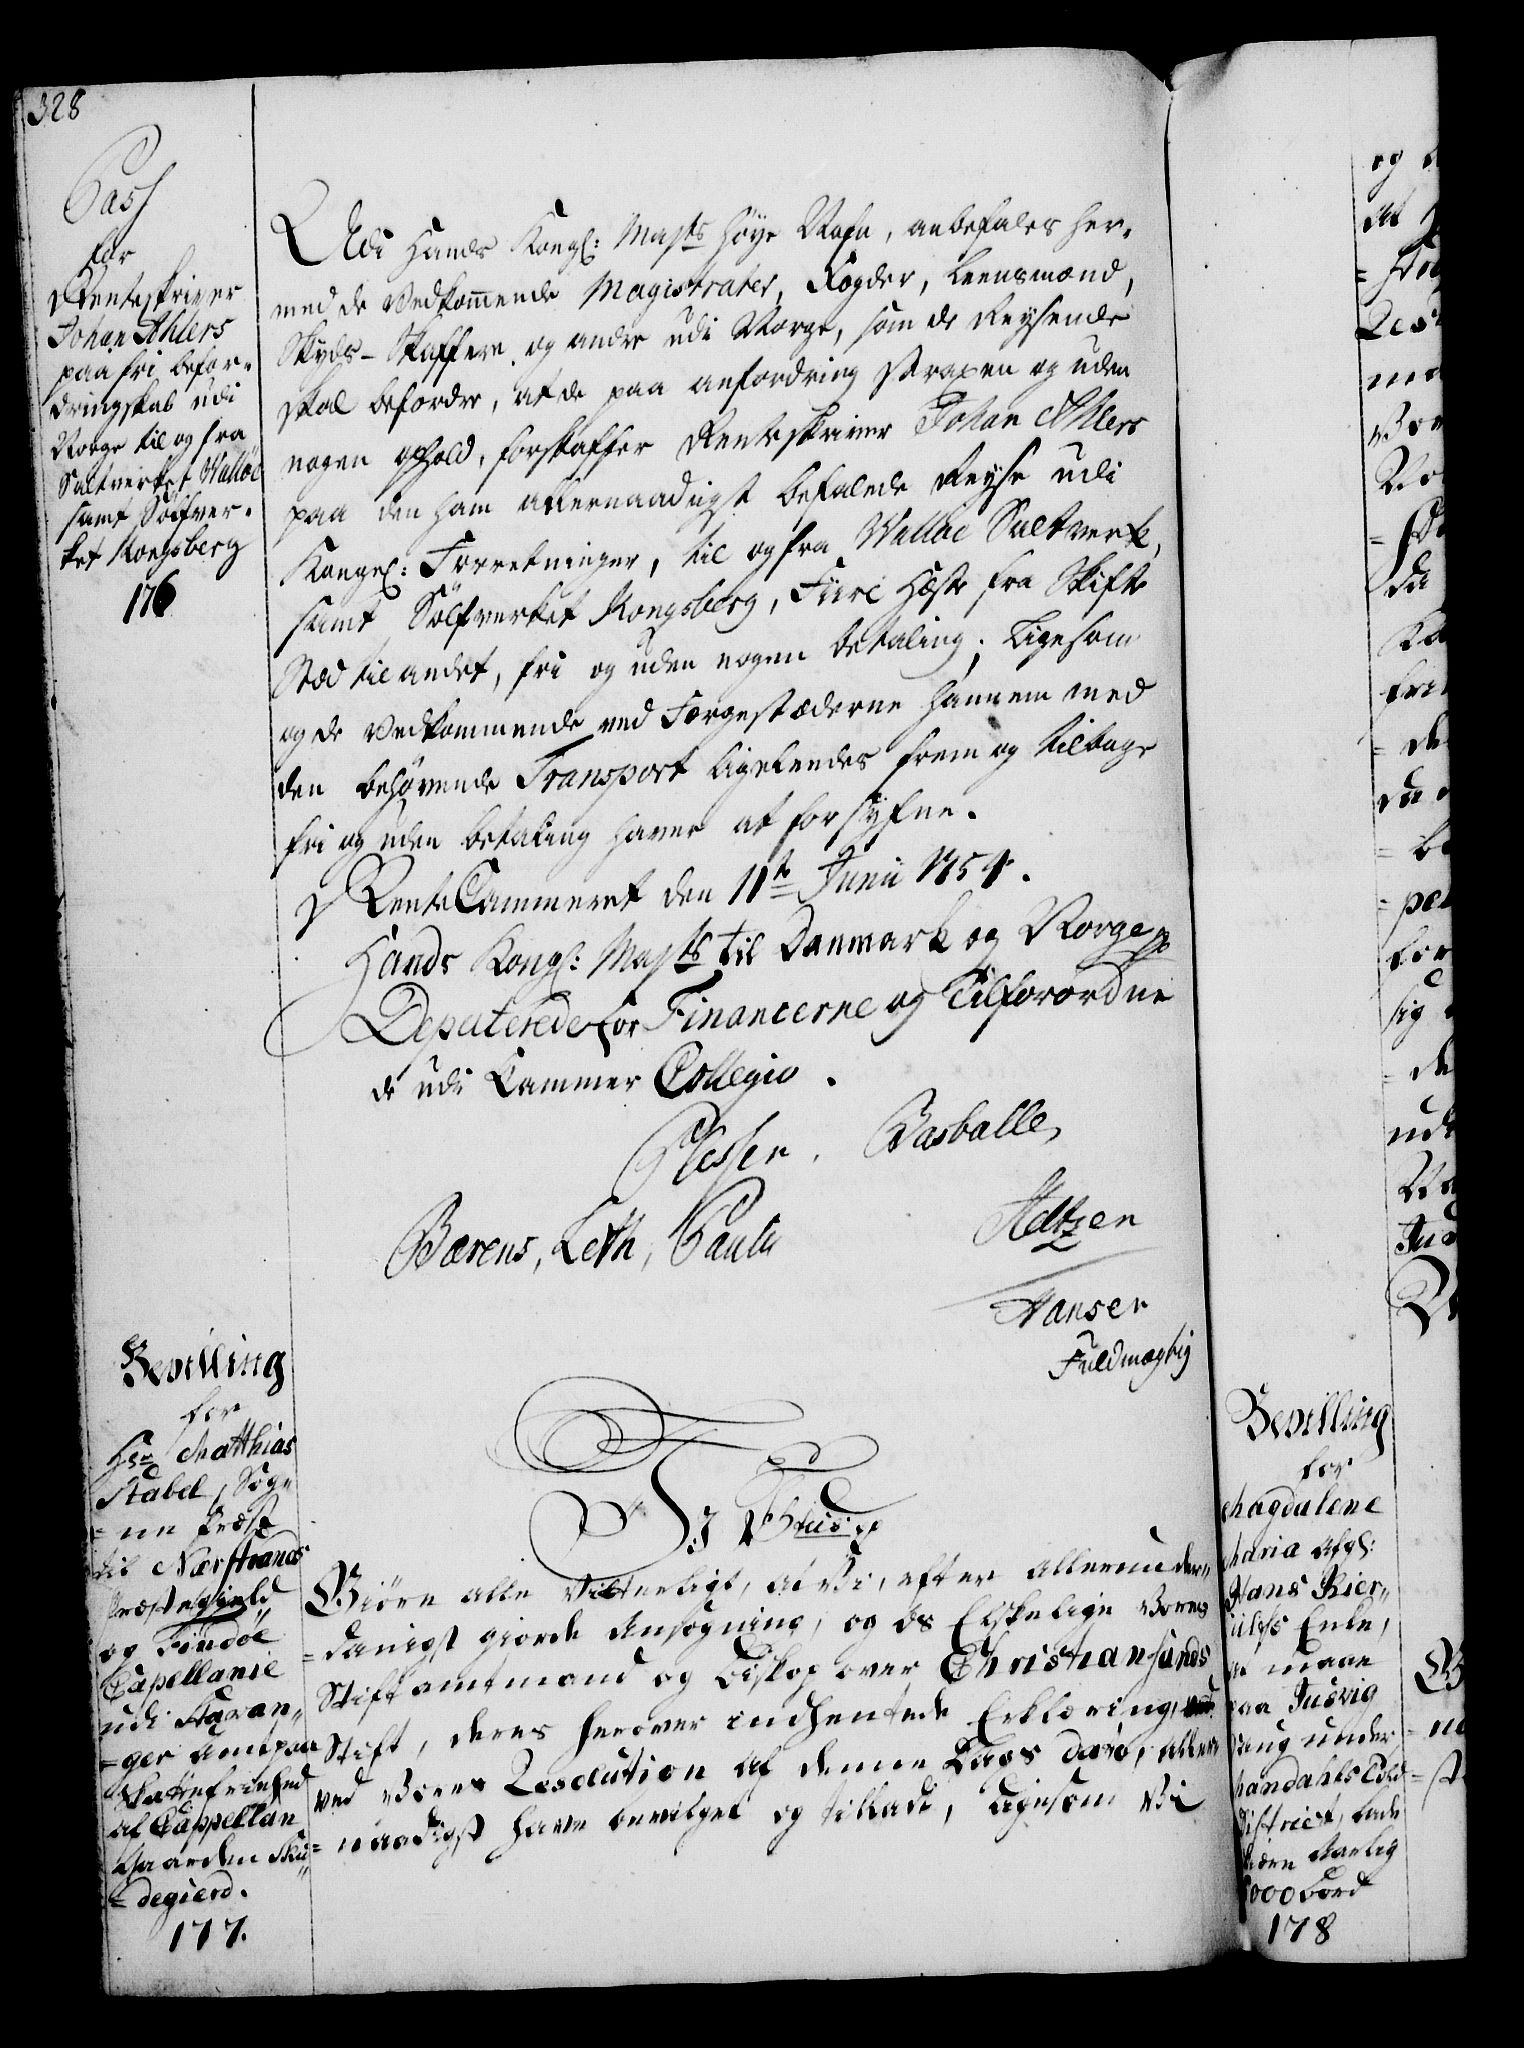 328
Pass
for
Renteskriver
Johan Ahlers
paa fri befor-
dringskab udi
Norge til og fra
Saltverket Walløe
samt Sølfver-
ket Kongsberg
176
Udi Hands Kongl: Majts høye Nafn, anbefales her-
med de Vedkommende Magistrater, Fogder, Leensmænd,
Skyds-Skaffere og andre udi Norge, som de Reysende
skal befordre, at de paa anfordring straxen og uden
nogen ophold, forskaffer Renteskriver Johan Ahlers
paa den ham allernaadigst befalede Reyse udi
Kongel: Forretninger, til og fra Walløe Saltverk,
samt Sølfverket Kongsberg, Fiire Hæste fra Skifte
Stæd til andet, fri og uden nogen betaling; Ligesom
og de Vedkommende ved Færgestæderne hannem med
den behøvende Transport ligeledes frem og tilbage
fri og uden betaling haver at forsyfne.
RenteCammeret den 11te Junii 1754.
Hands Kongl: Majts til Danmark og Norge p
Deputerede for Financerne og Tilforordne
de udi Cammer Collegio.
Plessen, Basballe,
Bærens, Leth, Pauli
Heltzen
Hansen
Fuldmægtig
Bevilling
for
Hr Matthias
Stabel, Sogne
= ne Præst
til Nærstrands
Præstegield
og Findöe
Capellanie
udi Stavan„
= ger Amt paa
Skattefriehed
af Cappellan
Gaarden Sku„
= degierd.
177.
F: 5tus p
Giöre alle Vitterligt, at Vi, efter allerunder„
= danigst giorde Ansøgning, og os Elskelige Vores
Stiftamtmand og Biskop over Christiansands
Stift, deres herover indhentede Erklæring,
ved Vores Resolution af denne Dags Dato, aller
= naadigst have bevilget og tilladt, Ligesom Vi
Bevilling
for
Magdalene
Maria Afgl:
Hans Kier„
ulfs Enke,
at maae
paa Jusvig
Saug under
Mandahls Told
District, lade
skiære Aarlig
5000 Bord
178